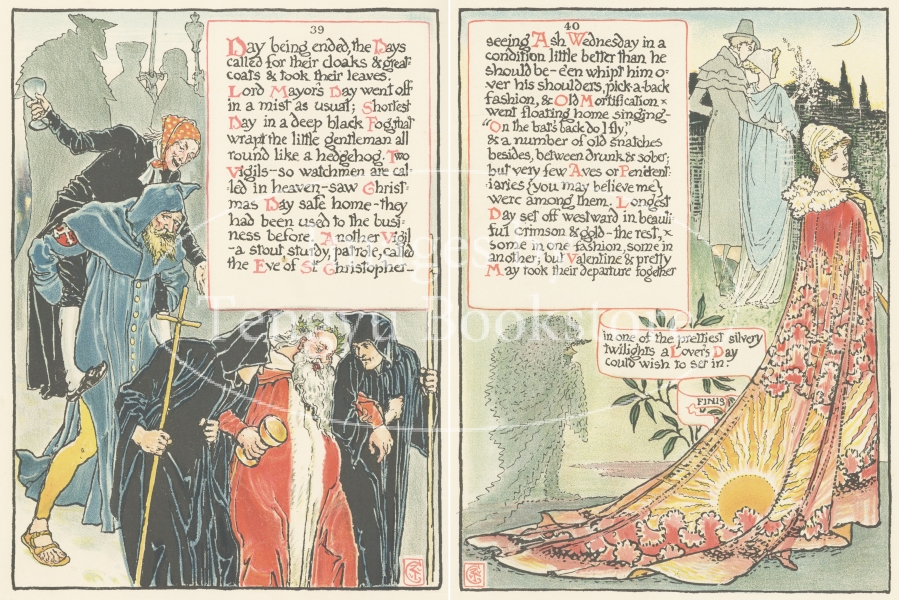 39
Day being ended, the Days
called for their cloaks & great-
coats & took their leaves.
Lord Mayor's Day went off
in a mist as usual; Shortest
Day in a deep black Fog that
wrapt the little gentleman all
round like a hedgehog. Two
Vigils—so watchmen are cal-
led in heaven—saw Christ-
mas Day safe home—they
had been used to the busi-
ness before. Another Vigil
—a stout sturdy, patrole, called
the Eve of St Christopher—
40
seeing Ash Wednesday in a
condition little better than he
should be—e'en whipt him o-
ver his shoulders, pick-a-back
fashion, & Old Mortification
went floating home singing—
"On the bat's back do I fly,"
& a number of old snatches
besides, between drunk & sober;
but very few Aves or Penitent-
iaries {you may believe me}
were among them. Longest
Day set off westward in beauti-
ful crimson & gold—the rest,
some in one fashion, some in
another; but Valentine & pretty
May took their departure together
in one of the prettiest silvery
twilights a Lover's Day
could wish to set in.
FINIS
Images by
Tenova Bookstore